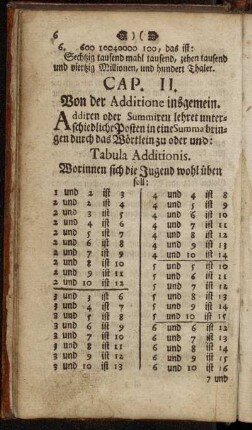 6 ❧ ) ( D
6, 600 10040000 100, das ist:
Sechtzig tausend mahl tausend, zehen tausend
und viertzig Millionen, und hundert Thaler.
CAP. II.
Von der Additione insgemein.
Addiren oder Summiren lehret unter-
schiedliche Posten in eine Summa brin-
gen durch das Wörtlein zu oder und:
Tabula Additionis.
Worinnen sich die Jugend wohl üben
soll:
1 und 2 ist 3
2 und 2 ist 4
2 und 3 ist 5
2 und 4 ist 6
2 und 5 ist 7
2 und 6 ist 8
2 und 7 ist 9
2 und 8 ist 10
2 und 9 ist 11
2 und 10 ist 12
3 und 3 ist 6
3 und 4 ist 7
3 und 5 ist 8
3 und 6 ist 9
3 und 7 ist 10
3 und 8 ist 11
3 und 9 ist 12
3 und 10 ist 13
4 und 4 ist 8
4 und 5 ist 9
4 und 6 ist 10
4 und 7 ist 11
4 und 8 ist 12
4 und 9 ist 13
4 und 10 ist 14
5 und 5 ist 10
5 und 6 ist 11
5 und 7 ist 12
5 und 8 ist 13
5 und 9 ist 14
5 und 10 ist 15
6 und 6 ist 12
6 und 7 ist 13
6 und 8 ist 14
6 und 9 ist 15
6 und 10 ist 16
7 und